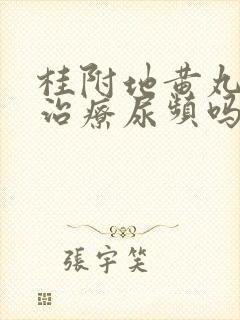 桂附地黄丸
治療尿頻吗
張宇笑